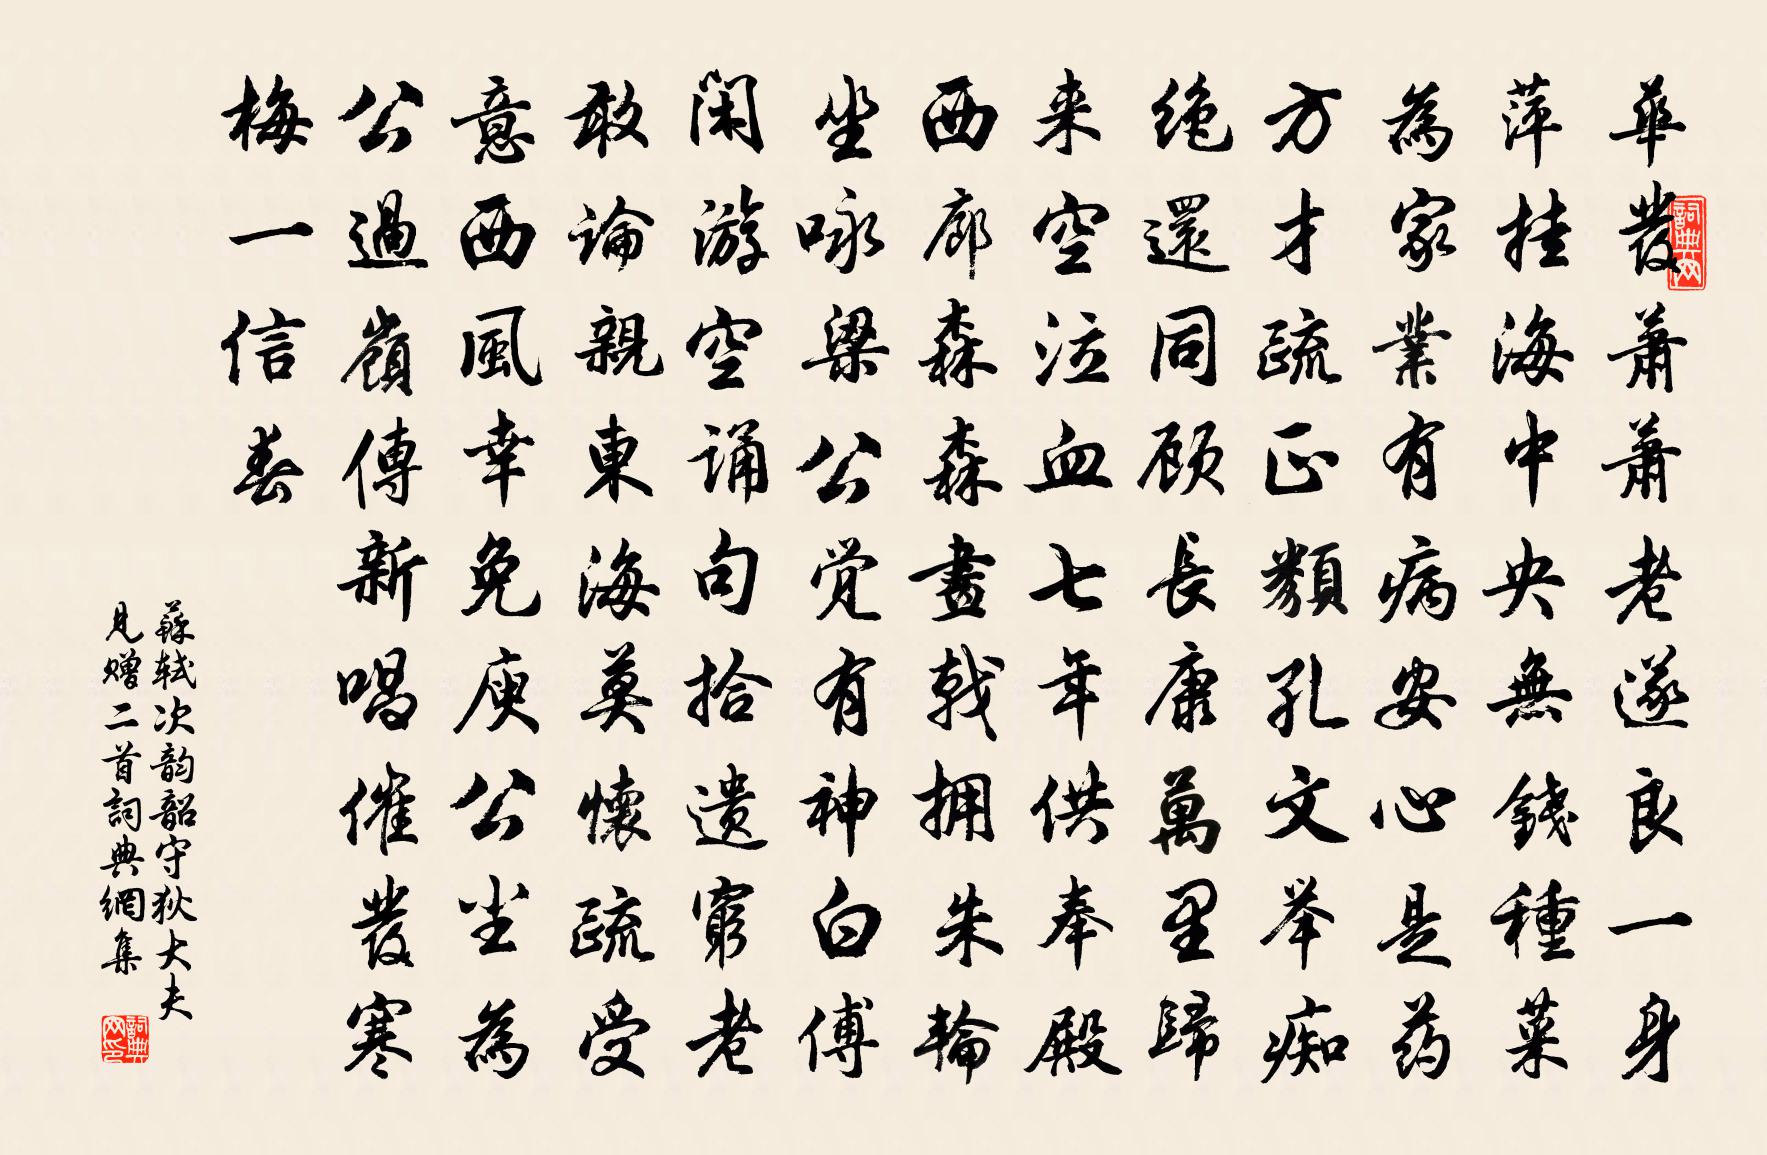 華發蕭蕭老遂良一身
萍挂海中央無錢種菜
為家業有病安心是药
方才疏正類孔文举痴
绝還同顾長康萬里歸
来空泣血七年供奉殿
西廊森森畫戟拥朱輪
坐咏梁公觉有神白傅
闲游空诵句拾遗窮老
敢論親東海莫懷疏受
意西風幸免庾公尘為
公過嶺傳新唱催發寒
梅一信春
蘇轼次韵韶守狄大夫
見赠二首詞典網集
詞典网
詞典网印